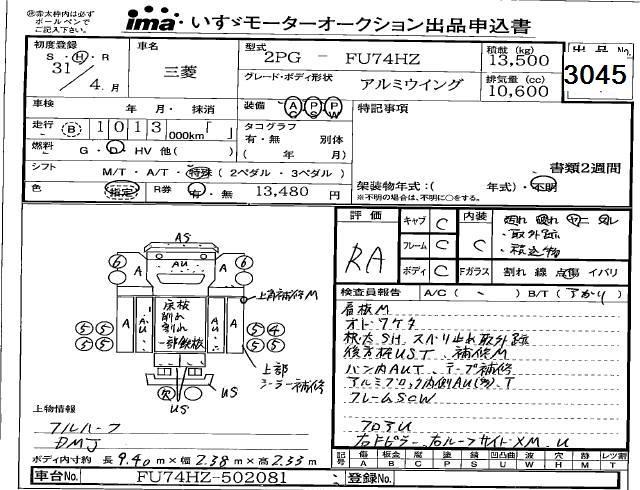 ※赤太枠内は必ず
ボールペンで
ご記入下さい。
ima いすゞモーターオークション出品申込書
初度登録
S・H・R
31/4.月
車名
三菱
型式
2PG － FU74HZ
グレード・ボディ形状
アルミウイング
積載 (kg)
13,500
排気量 (cc)
10,600
出品No.
3045
車検 年・月・抹消
装備 AC PS PW
特記事項
走行 B 1013 000km「 」
タコグラフ
有・無 別体
( 年 月)
燃料 G・D・HV 他( )
シフト M/T・A/T・特殊 (2ペダル・3ペダル)
書類2週間
色 指定 R券 有・無 13,480 円
架装物年式:( 年式)・不明
※不明の場合は、不明に○をする。
評価
RA
キャブ C
フレーム C
ボディ C
内装 C
・取外跡
・積込物
Fガラス 割れ 線 点傷 イパリ
検査員報告 A/C ( ) B/T (アカリ)
看板M
オドワケ有
後方板UST、補修M
バン内AUT、テープ補修
アルミブロック内側AU(多)、T
フレームSCW
フロアU
右Fピラー、右ルーフサイドXM、U
AS
AU
A A
6 6
A AU AU A
床板
削れ
割れ
一部鉄板
5 5 5 4
5 5 5 5
上角補修M
上部
シーラー補修
欠
US US
上物情報
フルハーフ
DMJ
ボディ内寸約 長9.40m×幅2.38m×高2.53m
記号 傷 板金 腐 塗 錆 凹凸曲 波 穴 跡 レツ割
A B C P S U W H M T
車台No. FU74HZ-502081 登録No.